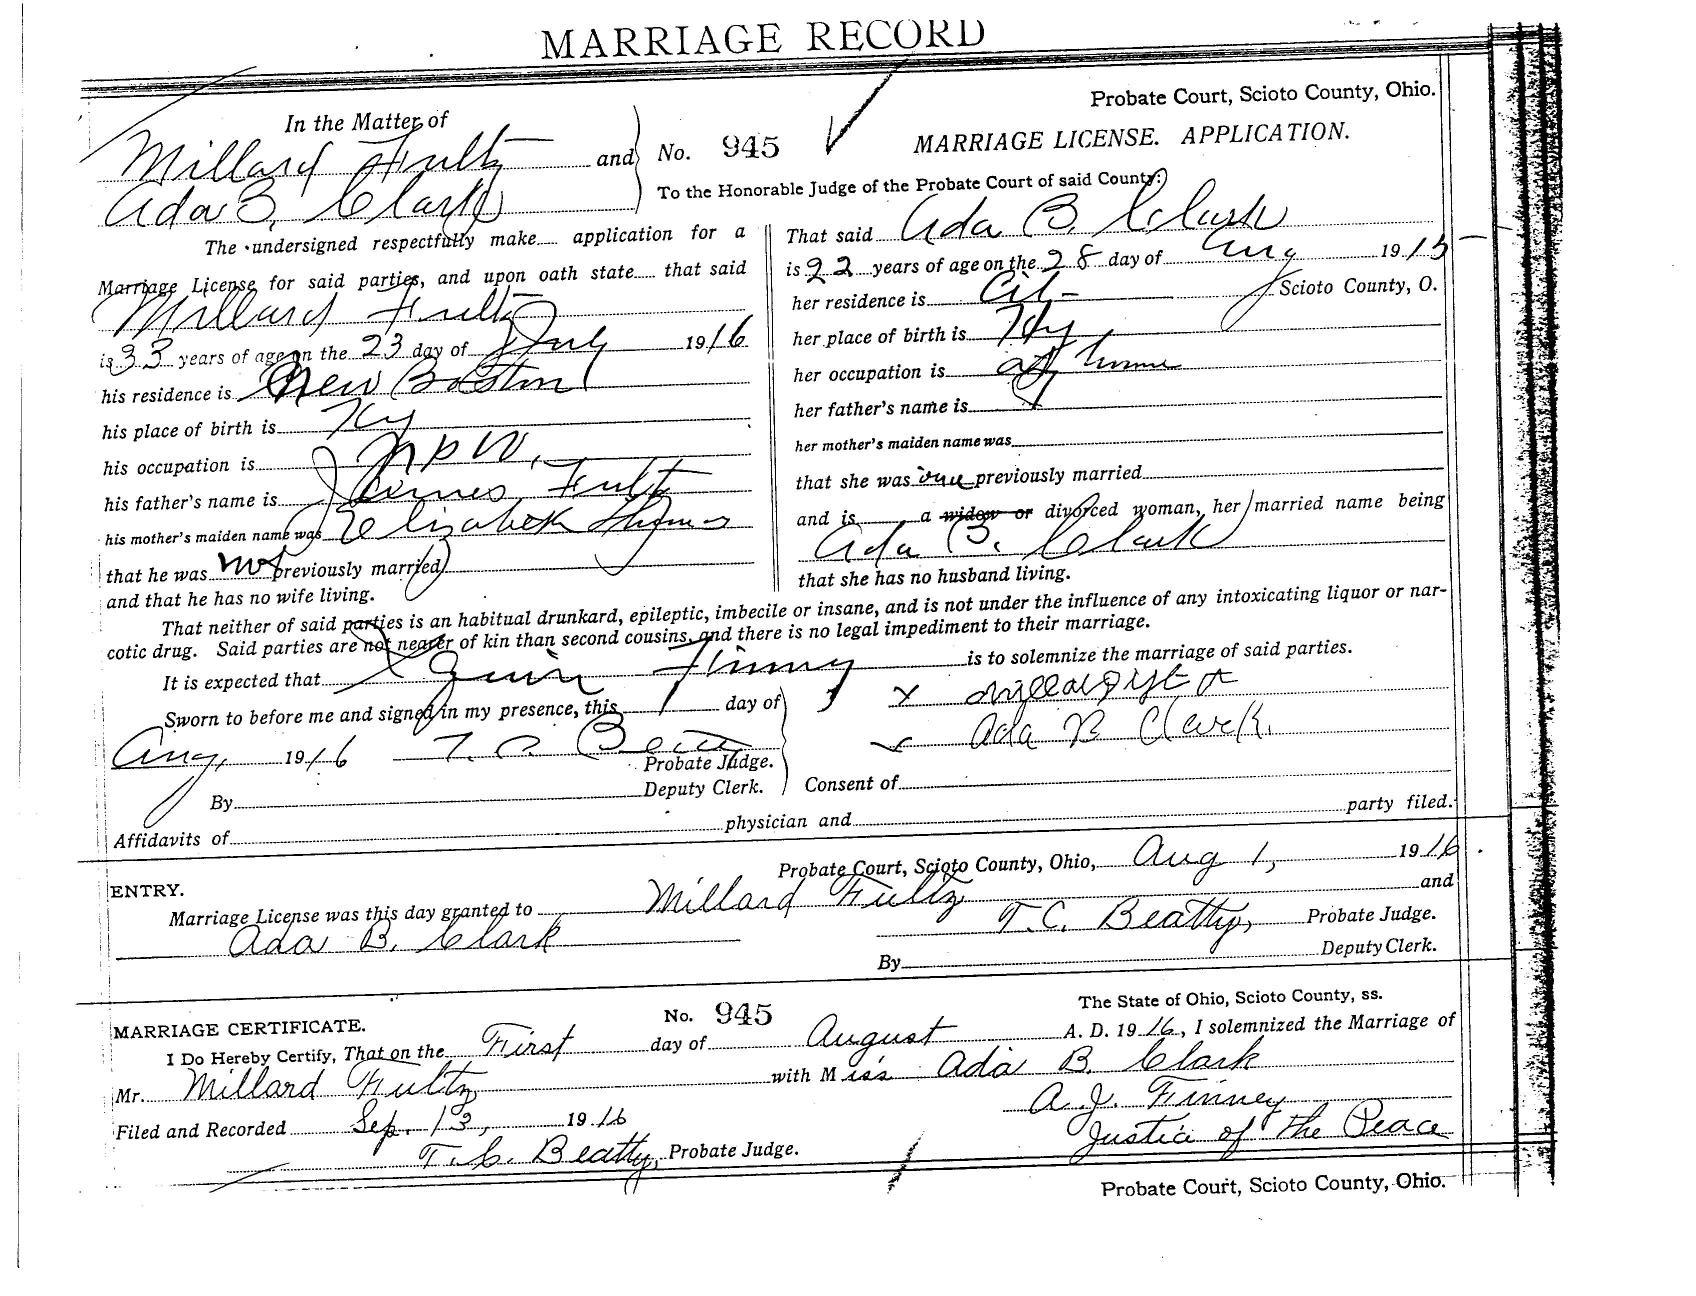 MARRIAGE RECORD
Probate Court, Scioto County, Ohio.
In the Matter of
Millard Fultz and
Ada B. Clark
No. 945
MARRIAGE LICENSE. APPLICATION.
To the Honorable Judge of the Probate Court of said County:
The undersigned respectfully make application for a
Marriage License for said parties, and upon oath state that said
Millard Fultz
is 33 years of age on the 23 day of July 1916
his residence is New Boston
his place of birth is Ky
his occupation is
his father's name is James Fultz
his mother's maiden name was Elizabeth
that he was not previously married
and that he has no wife living.
That said Ada B. Clark
is 22 years of age on the 28 day of Aug 1915
her residence is City Scioto County, O.
her place of birth is Ky
her occupation is at home
her father's name is
her mother's maiden name was
that she was one previously married
and is a widow or divorced woman, her married name being
Ada B. Clark
that she has no husband living.
That neither of said parties is an habitual drunkard, epileptic, imbecile or insane, and is not under the influence of any intoxicating liquor or nar-
cotic drug. Said parties are not nearer of kin than second cousins, and there is no legal impediment to their marriage.
It is expected that Squire Finney is to solemnize the marriage of said parties.
Sworn to before me and signed in my presence, this 1 day of
Aug, 1916 T. C. Beatty
Probate Judge.
By Deputy Clerk.
x
Ada B Clark.
Consent of
Affidavits of physician and party filed.
Probate Court, Scioto County, Ohio, Aug 1, 1916
ENTRY.
Marriage License was this day granted to Millard Fultz and
Ada B. Clark
T.C. Beatty, Probate Judge.
By Deputy Clerk.
MARRIAGE CERTIFICATE. No. 945 The State of Ohio, Scioto County, ss.
I Do Hereby Certify, That on the First day of August A. D. 1916, I solemnized the Marriage of
Mr. Millard Fultz with Miss Ada B. Clark
A. J. Finney
Justice of the Peace
Filed and Recorded Sep. 13, 1916
T. C. Beatty, Probate Judge.
Probate Court, Scioto County, Ohio.